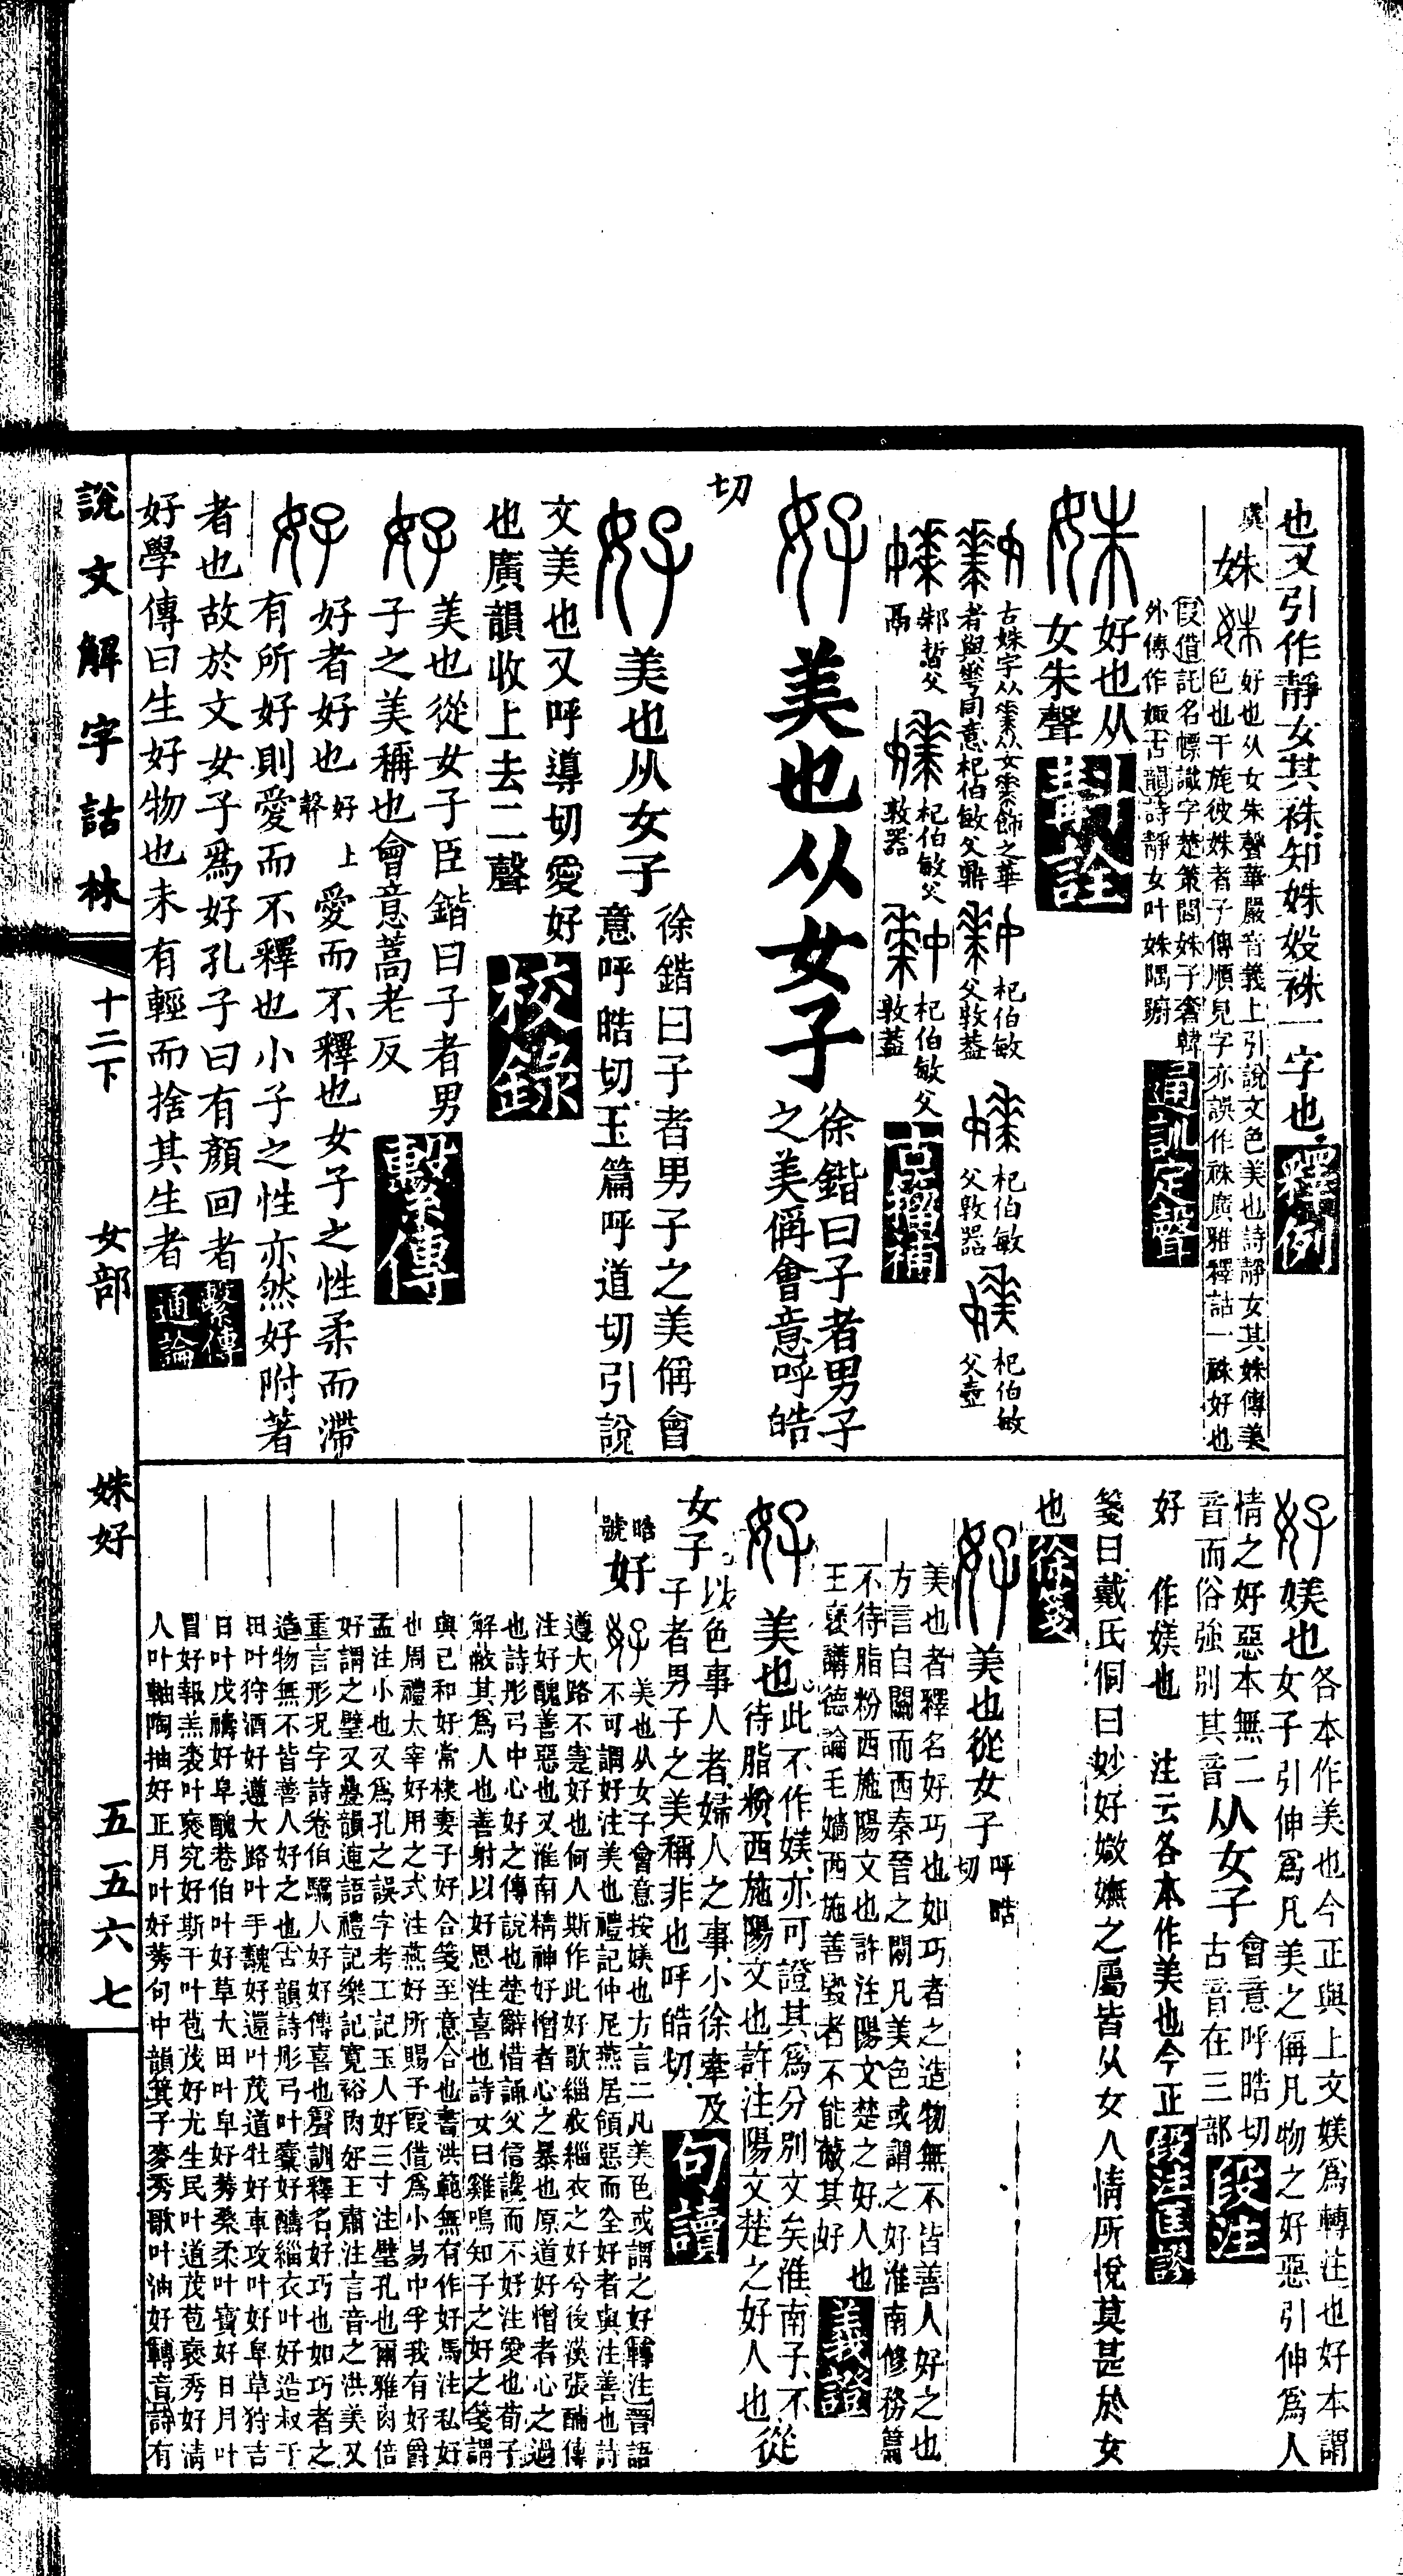 也又引作靜女其袾知姝㛠袾一字也釋例
虞
姝 好也从女朱聲華嚴音義上引說文色美也詩靜女其姝傳美
色也干旄彼姝者子傳順皃字亦誤作袾廣雅釋詁一袾好也
假借託名幖識字楚策閭姝子奢韓
外傳作娵古韻詩靜女叶姝隅躕通訓定聲
姝 好也从
女朱聲斠詮
古姝字从𠦪从女𠦪飾之華
者與𠦪同意杞伯敏父鼎
杞伯敏
父敦葢
杞伯敏
父敦器
杞伯敏
父壺
邾䚄父
鬲
杞伯敏父
敦器
杞伯敏父
敦葢
古籀補
好 美也从女子徐鍇曰子者男子
之美偁會意呼皓
切
好 美也从女子徐鍇曰子者男子之美偁會
意呼晧切玉篇呼道切引說
文美也又呼導切愛好
也廣韻收上去二聲校錄
好 美也從女子臣鍇曰子者男
子之美稱也會意蒿老反繫傳
好 好者好也好上聲愛而不釋也女子之性柔而滯
有所好則愛而不釋也小子之性亦然好附著
者也故於文女子爲好孔子曰有顏回者
好學傳曰生好物也未有輕而捨其生者繫傳通論
好 媄也各本作美也今正與上文媄爲轉注也好本謂
女子引伸爲凡美之偁凡物之好惡引伸爲人
情之好惡本無二
音而俗強別其音从女子會意呼晧切
古音在三部段注
好 作媄也 注云各本作美也今正段注匡謬
箋曰戴氏侗曰妙好媺嫵之屬皆从女人情所悅莫甚於女
也徐箋
好 美也從女子呼晧
切
美也者釋名好巧也如巧者之造物無不皆善人好之也
方言自關而西秦晉之閒凡美色或謂之好淮南修務篇
不待脂粉西施陽文也許注陽文楚之好人也
王襃講德論毛嬙西施善毀者不能蔽其好義證
好 美也此不作媄亦可證其爲分別文矣淮南子不
待脂粉西施陽文也許注陽文楚之好人也從
女子以色事人者婦人之事小徐牽及
子者男子之美稱非也呼皓切句讀
晧
號
好 美也从女子會意按媄也方言二凡美色或謂之好轉注晉語
不可謂好注美也禮記仲尼燕居領惡而全好者與注善也詩
遵大路不寁好也何人斯作此好歌緇衣緇衣之好兮後漢張酺傳
注好醜善惡也又淮南精神好憎者心之暴也原道好憎者心之過
也詩彤弓中心好之傳說也楚辭惜誦父信讒而不好注愛也荀子
解蔽其爲人也善射以好思注喜也詩女曰雞鳴知子之好之箋謂
與己和好常棣妻子好合箋至意合也書洪範無有作好馬注私好
也周禮太宰好用之式注燕好所賜予假借爲小易中孚我有好爵
孟注小也又爲孔之誤字考工記玉人好三寸注璧孔也爾雅肉倍
好謂之璧又疊韻連語禮記樂記寬裕肉好王肅注言音之洪美又
重言形況字詩巷伯驕人好好傳喜也聲訓釋名好巧也如巧者之
造物無不皆善人好之也古韻詩彤弓叶櫜好醻緇衣叶好造叔于
田叶狩酒好遵大路叶手魗好還叶茂道牡好車攻叶好阜草狩吉
日叶戊禱好阜醜巷伯叶好草大田叶阜好莠桑柔叶寶好日月叶
冒好報羔裘叶褎究好斯干叶苞茂好尤生民叶道茂苞褎秀好清
人叶軸陶抽好正月叶好莠句中韻箕子麥秀歌叶油好轉音詩有
說文解字詁林
十二下
女部
姝好
五五六七